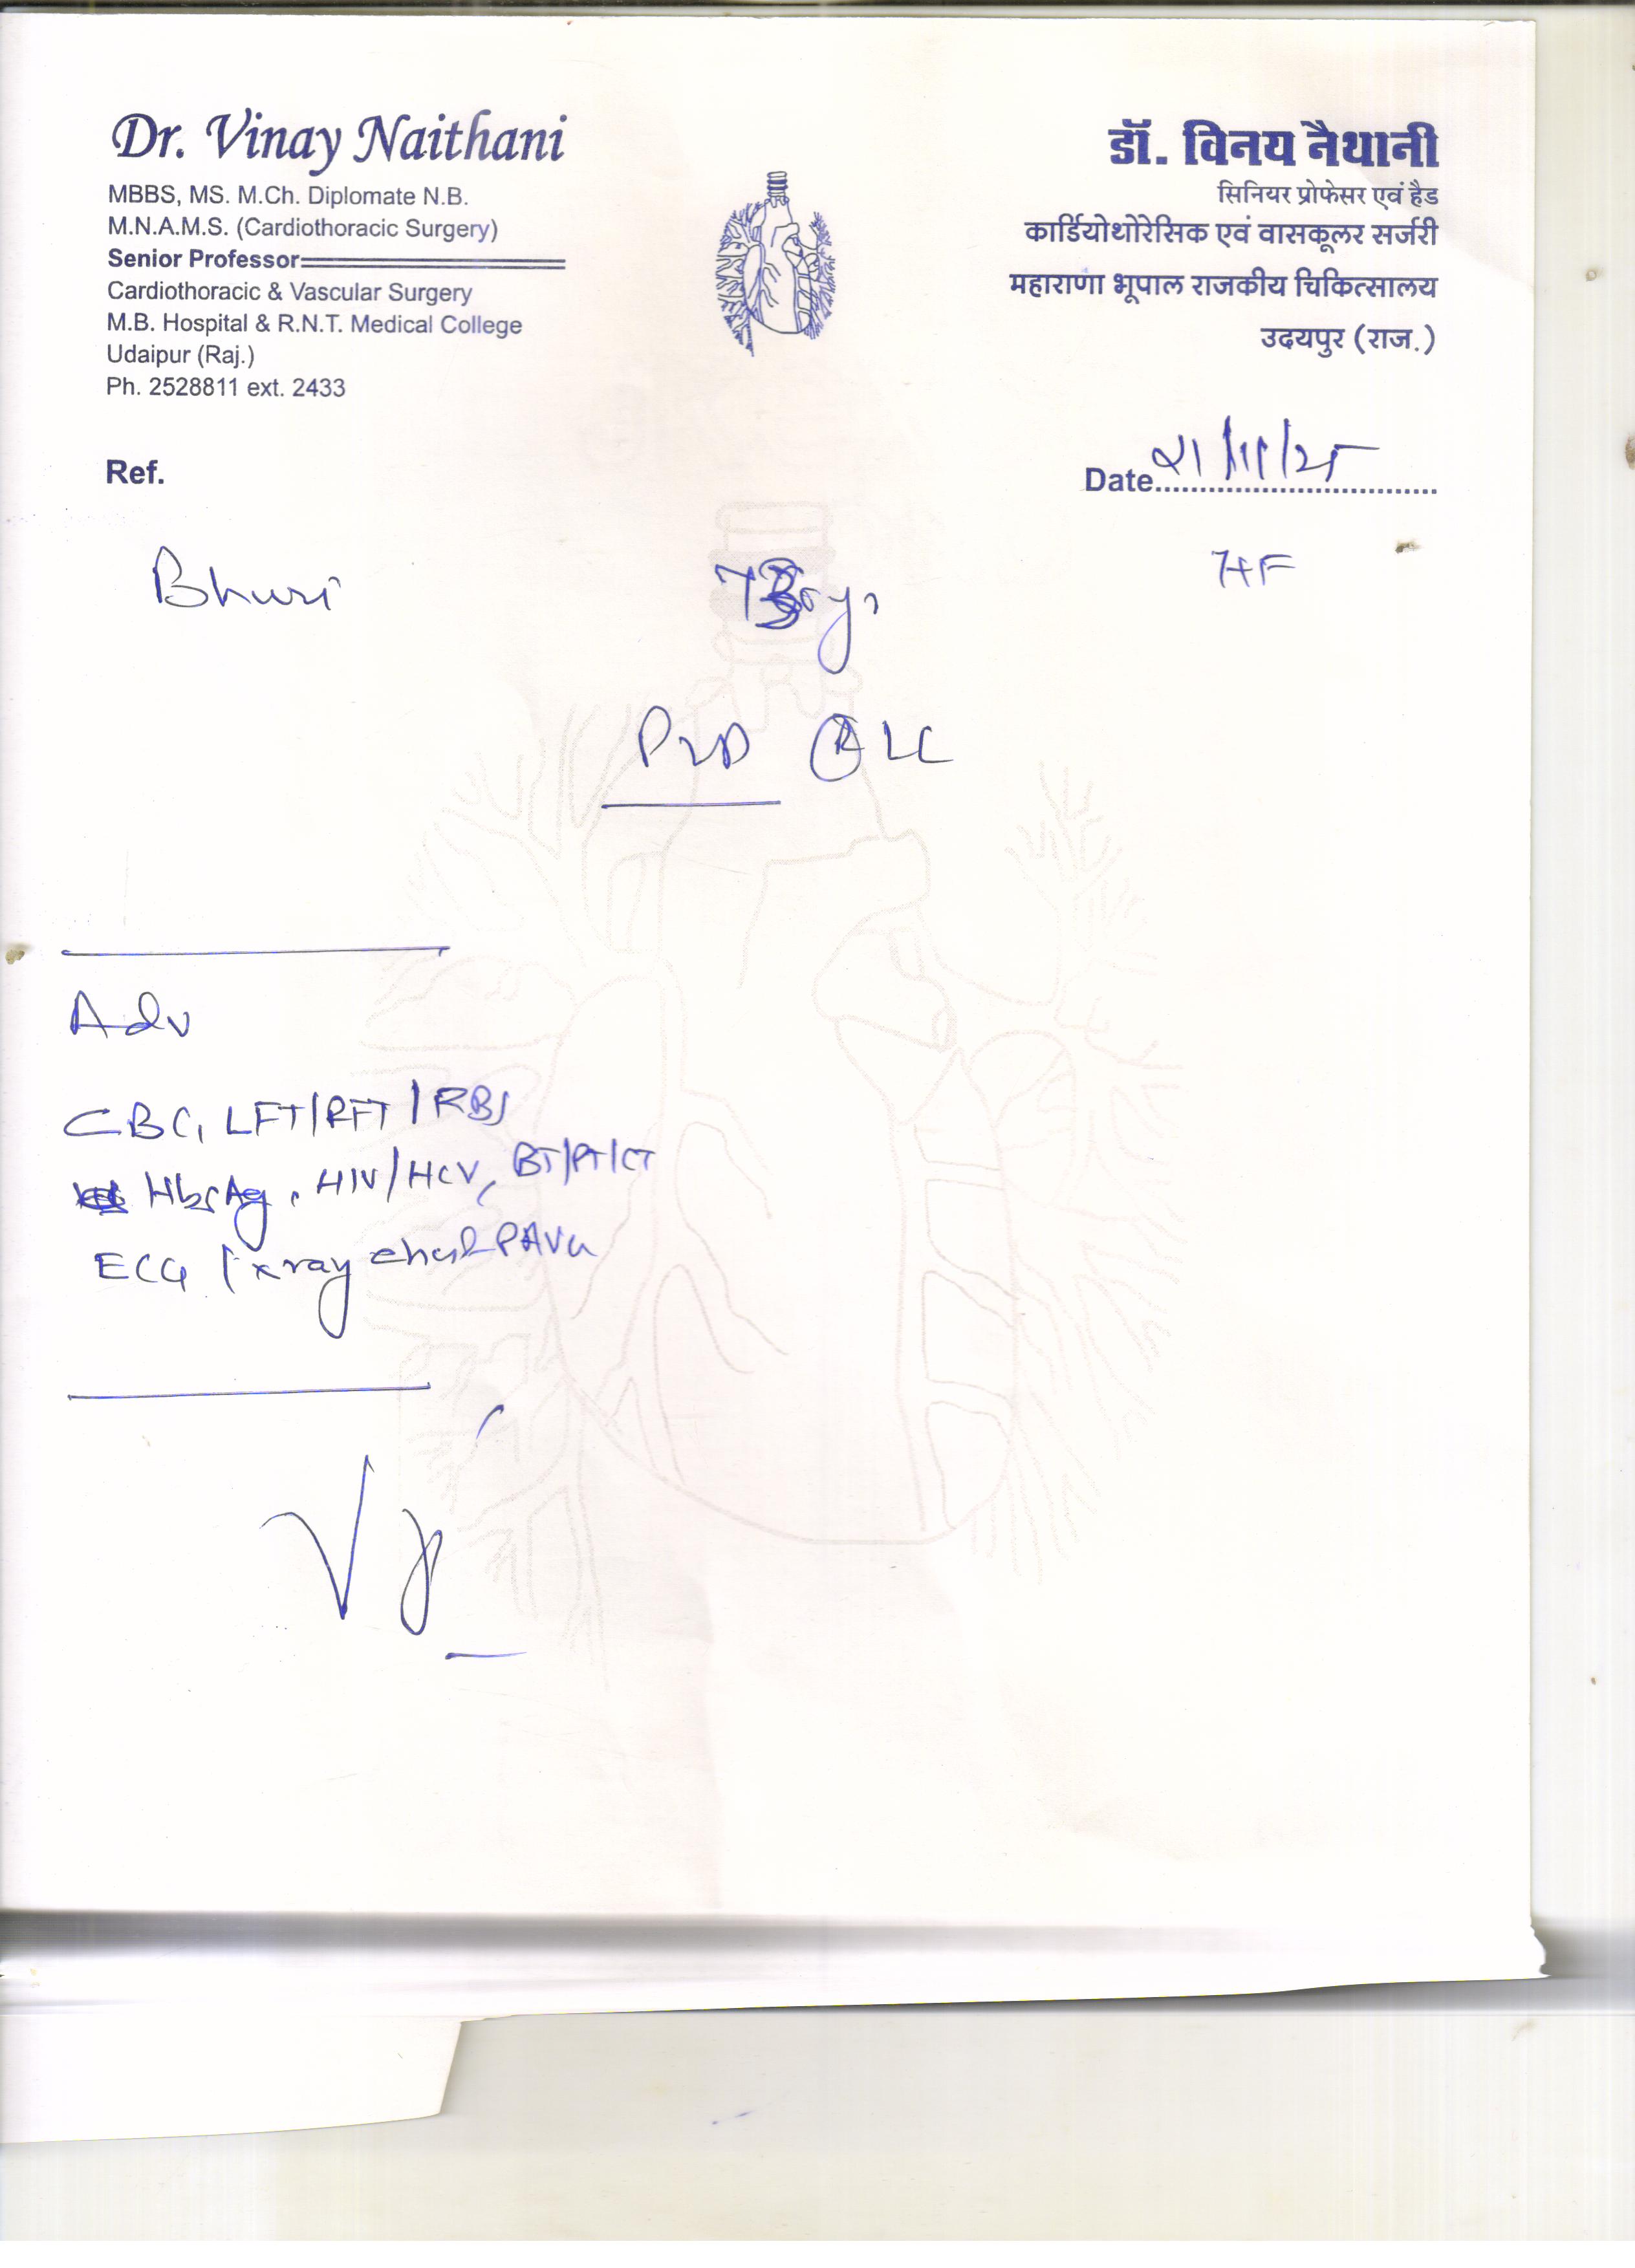 Dr. Vinay Naithani
MBBS, MS. M.Ch. Diplomate N.B.
M.N.A.M.S. (Cardiothoracic Surgery)
Senior Professor
Cardiothoracic & Vascular Surgery
M.B. Hospital & R.N.T. Medical College
Udaipur (Raj.)
Ph. 2528811 ext. 2433
डॉ. विनय नैथानी
सिनियर प्रोफेसर एवं हैड
कार्डियोथोरेसिक एवं वासकूलर सर्जरी
महाराणा भूपाल राजकीय चिकित्सालय
उदयपुर (राज.)
Ref.
Date 21/11/25
Bhuri
PVD
Adv
CBC, LFT/RFT/RBS
HbsAg, HIV/HCV, BT/PT/CT
ECG / xray chest PAVu